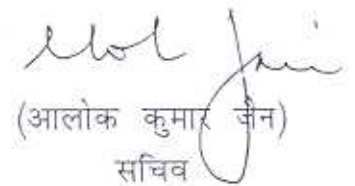 (आलोक कुमार जैन)
सचिव